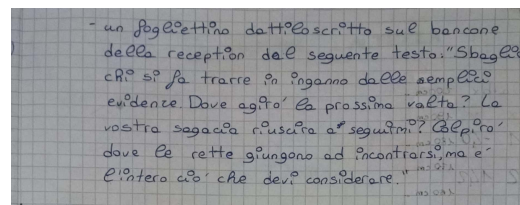 - un fogliettino dattiloscritto sul bancone
della reception dal seguente testo: "Sbaglia
chi si fa trarre in inganno dalle semplici
evidence. Dove agirò la prossima volta? La
vostra sagacia riuscirà a seguirmi? Colpirò
dove le rette giungono ad incontrarsi, ma è
l'intero ciò che devi considerare."